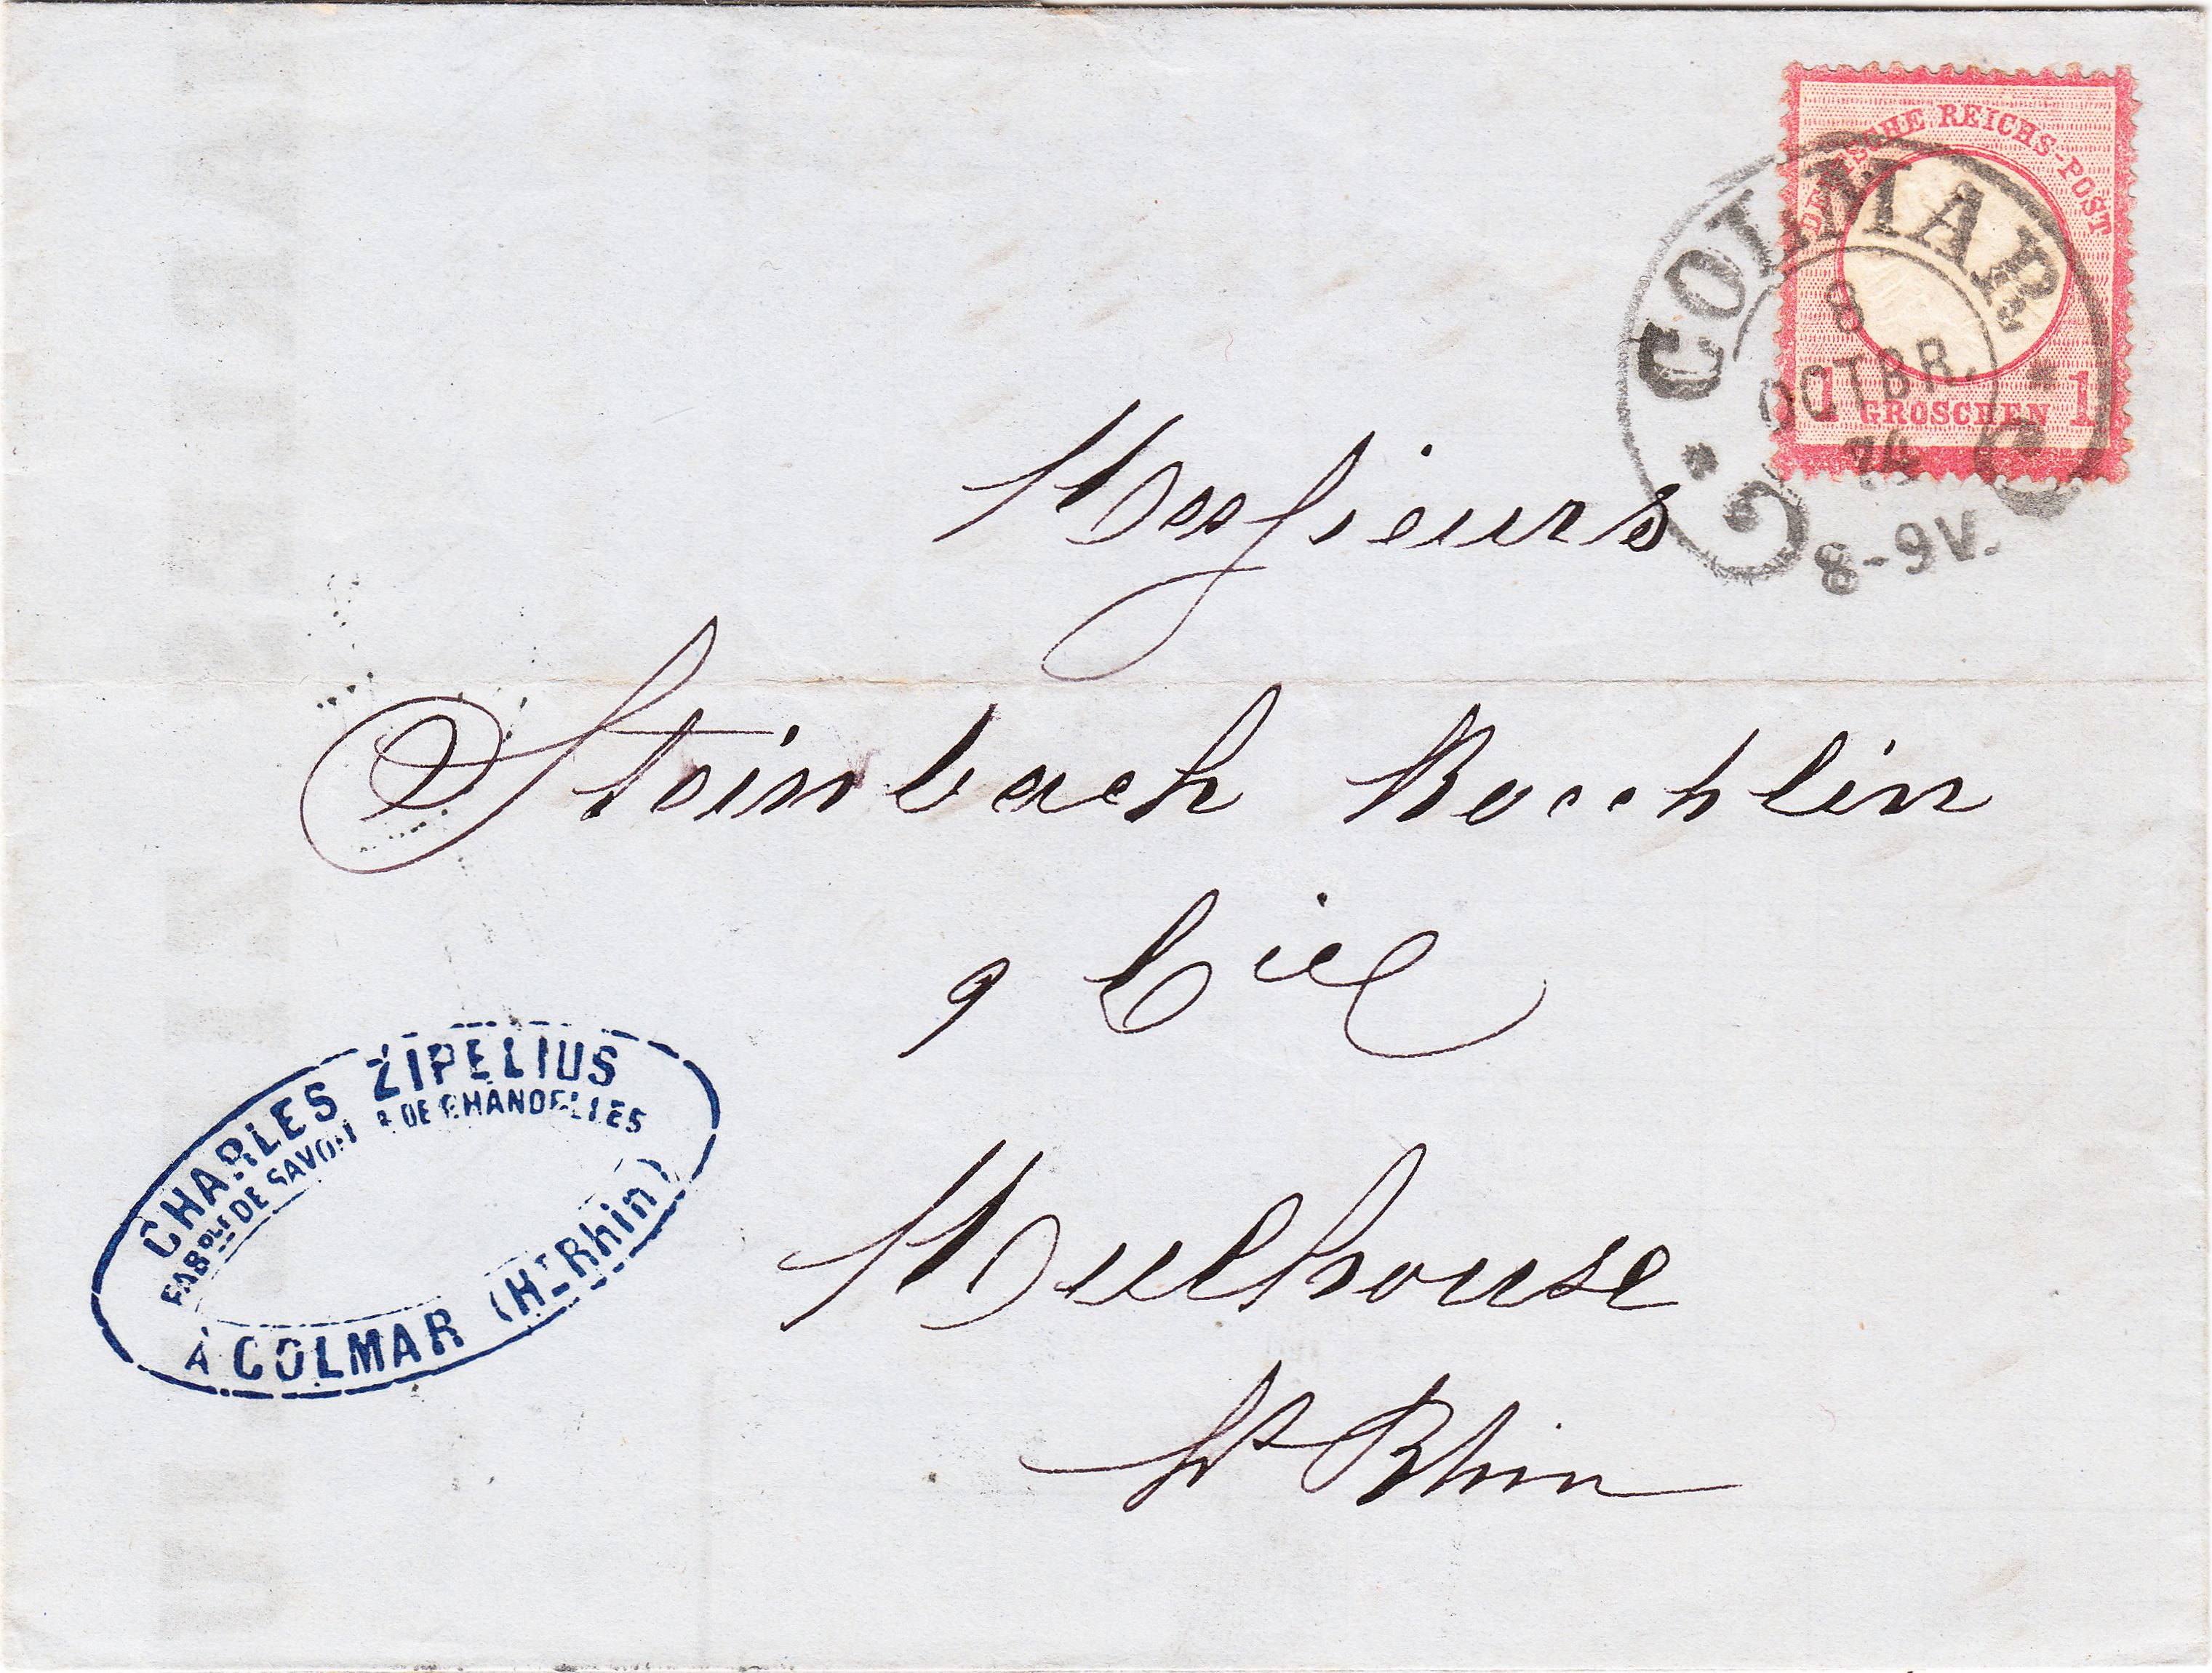 DEUTSCHE REICHS-POST
1 GROSCHEN 1
COLMAR
8
OCTBR.
74
8-9V.
Messieurs
Steinbach Koechlin
& Cie
Mulhouse
Ht Rhin
CHARLES ZIPELIUS
FABQUE DE SAVON & DE CHANDELLES
À COLMAR (HT RHin)